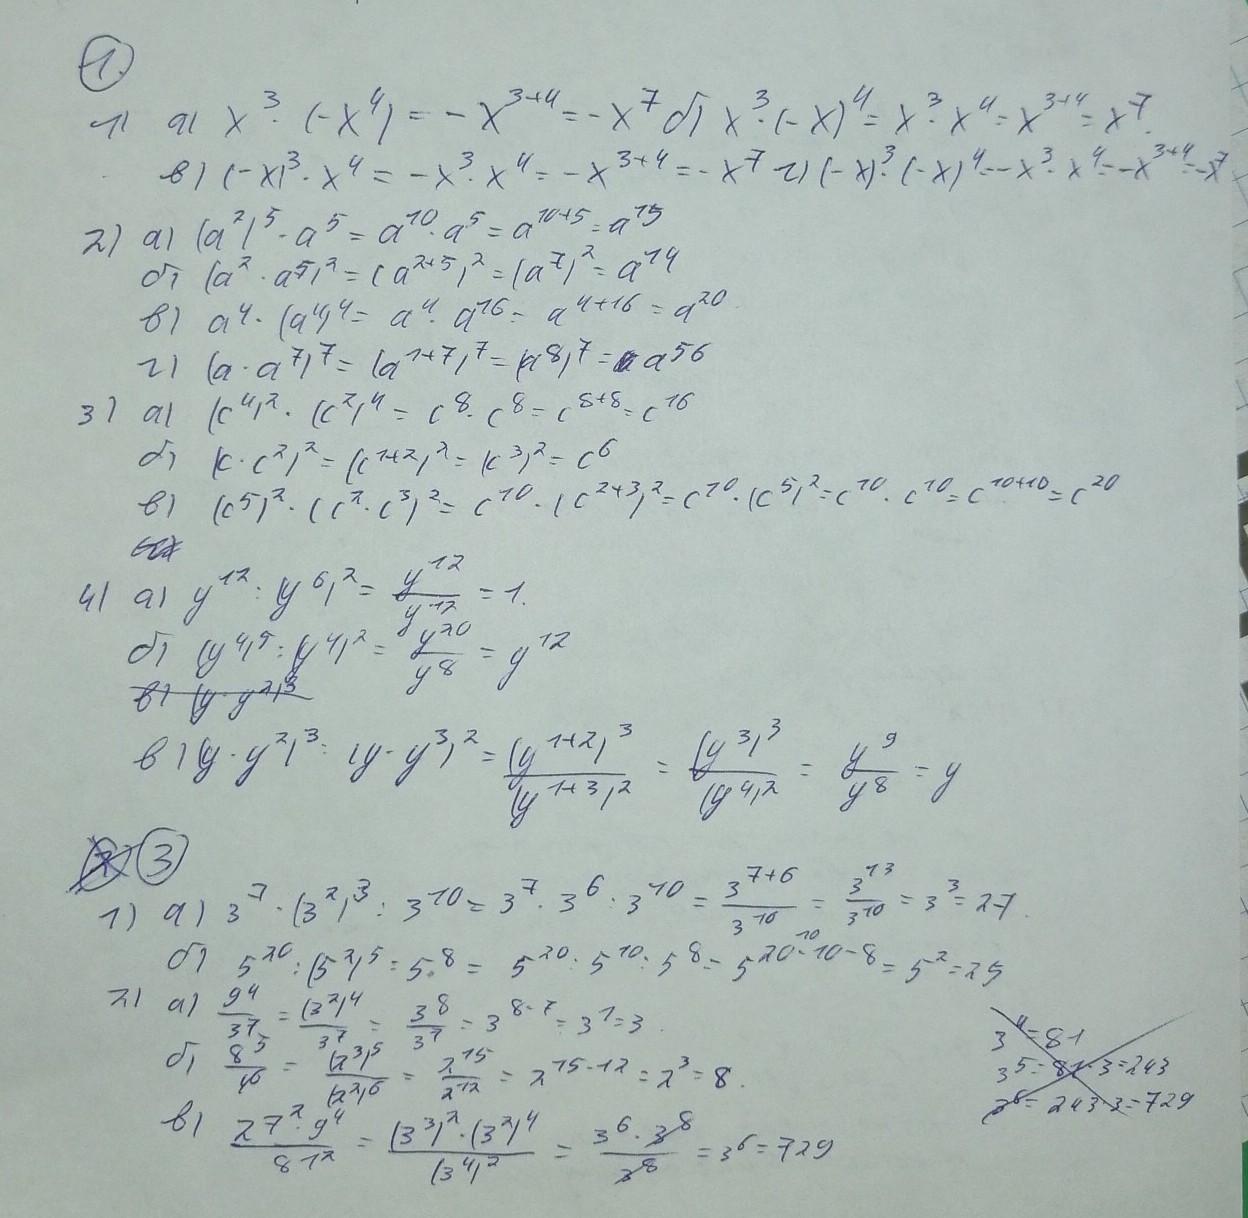 1.
1) а) x³ · (-x⁴) = -x³⁺⁴ = -x⁷ б) x³ · (-x)⁴ = x³ · x⁴ = x³⁺⁴ = x⁷.
в) (-x)³ · x⁴ = -x³ · x⁴ = -x³⁺⁴ = -x⁷ г) (-x)³ · (-x)⁴ = -x³ · x⁴ = -x³⁺⁴ = -x⁷
2) а) (a²)⁵ · a⁵ = a¹⁰ · a⁵ = a¹⁰⁺⁵ = a¹⁵
б) (a² · a⁵)² = (a²⁺⁵)² = (a⁷)² = a¹⁴
в) a⁴ · (a⁴)⁴ = a⁴ · a¹⁶ = a⁴⁺¹⁶ = a²⁰
г) (a · a⁷)⁷ = (a¹⁺⁷)⁷ = (a⁸)⁷ = a⁵⁶
3) а) (c⁴)² · (c²)⁴ = c⁸ · c⁸ = c⁸⁺⁸ = c¹⁶
б) (c · c²)² = (c¹⁺²)² = (c³)² = c⁶
в) (c⁵)² · (c² · c³)² = c¹⁰ · (c²⁺³)² = c¹⁰ · (c⁵)² = c¹⁰ · c¹⁰ = c¹⁰⁺¹⁰ = c²⁰
4) а) y¹² : (y⁶)² = y¹²/y¹² = 1.
б) (y⁴)⁵ : (y⁴)² = y²⁰/y⁸ = y¹²
в) (y · y²)³
в) (y · y²)³ : (y · y³)² = (y¹⁺²)³/(y¹⁺³)² = (y³)³/(y⁴)² = y⁹/y⁸ = y
3
1) а) 3⁷ · (3²)³ : 3¹⁰ = 3⁷ · 3⁶ : 3¹⁰ = 3⁷⁺⁶/3¹⁰ = 3¹³/3¹⁰ = 3³ = 27.
б) 5²⁰ : (5²)⁵ : 5⁸ = 5²⁰ : 5¹⁰ : 5⁸ = 5²⁰⁻¹⁰⁻⁸ = 5² = 25
2) а) 9⁴/3⁷ = (3²)⁴/3⁷ = 3⁸/3⁷ = 3⁸⁻⁷ = 3¹ = 3.
3⁴ = 81
б) 8⁵/4⁶ = (2³)⁵/(2²)⁶ = 2¹⁵/2¹² = 2¹⁵⁻¹² = 2³ = 8.
3⁵ = 81 · 3 = 243
3⁶ = 243 · 3 = 729
в) 27² · 9⁴/81² = (3³)² · (3²)⁴/(3⁴)² = 3⁶ · 3⁸/3⁸ = 3⁶ = 729